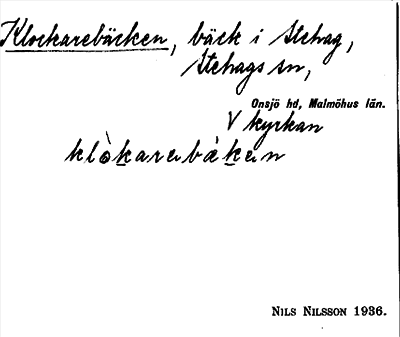 Klockarebäcken, bäck i Stehag,
Stehags sn,
Onsjö hd, Malmöhus län.
V kyrkan
klòkarabákan
NILS NILSSON 1936.